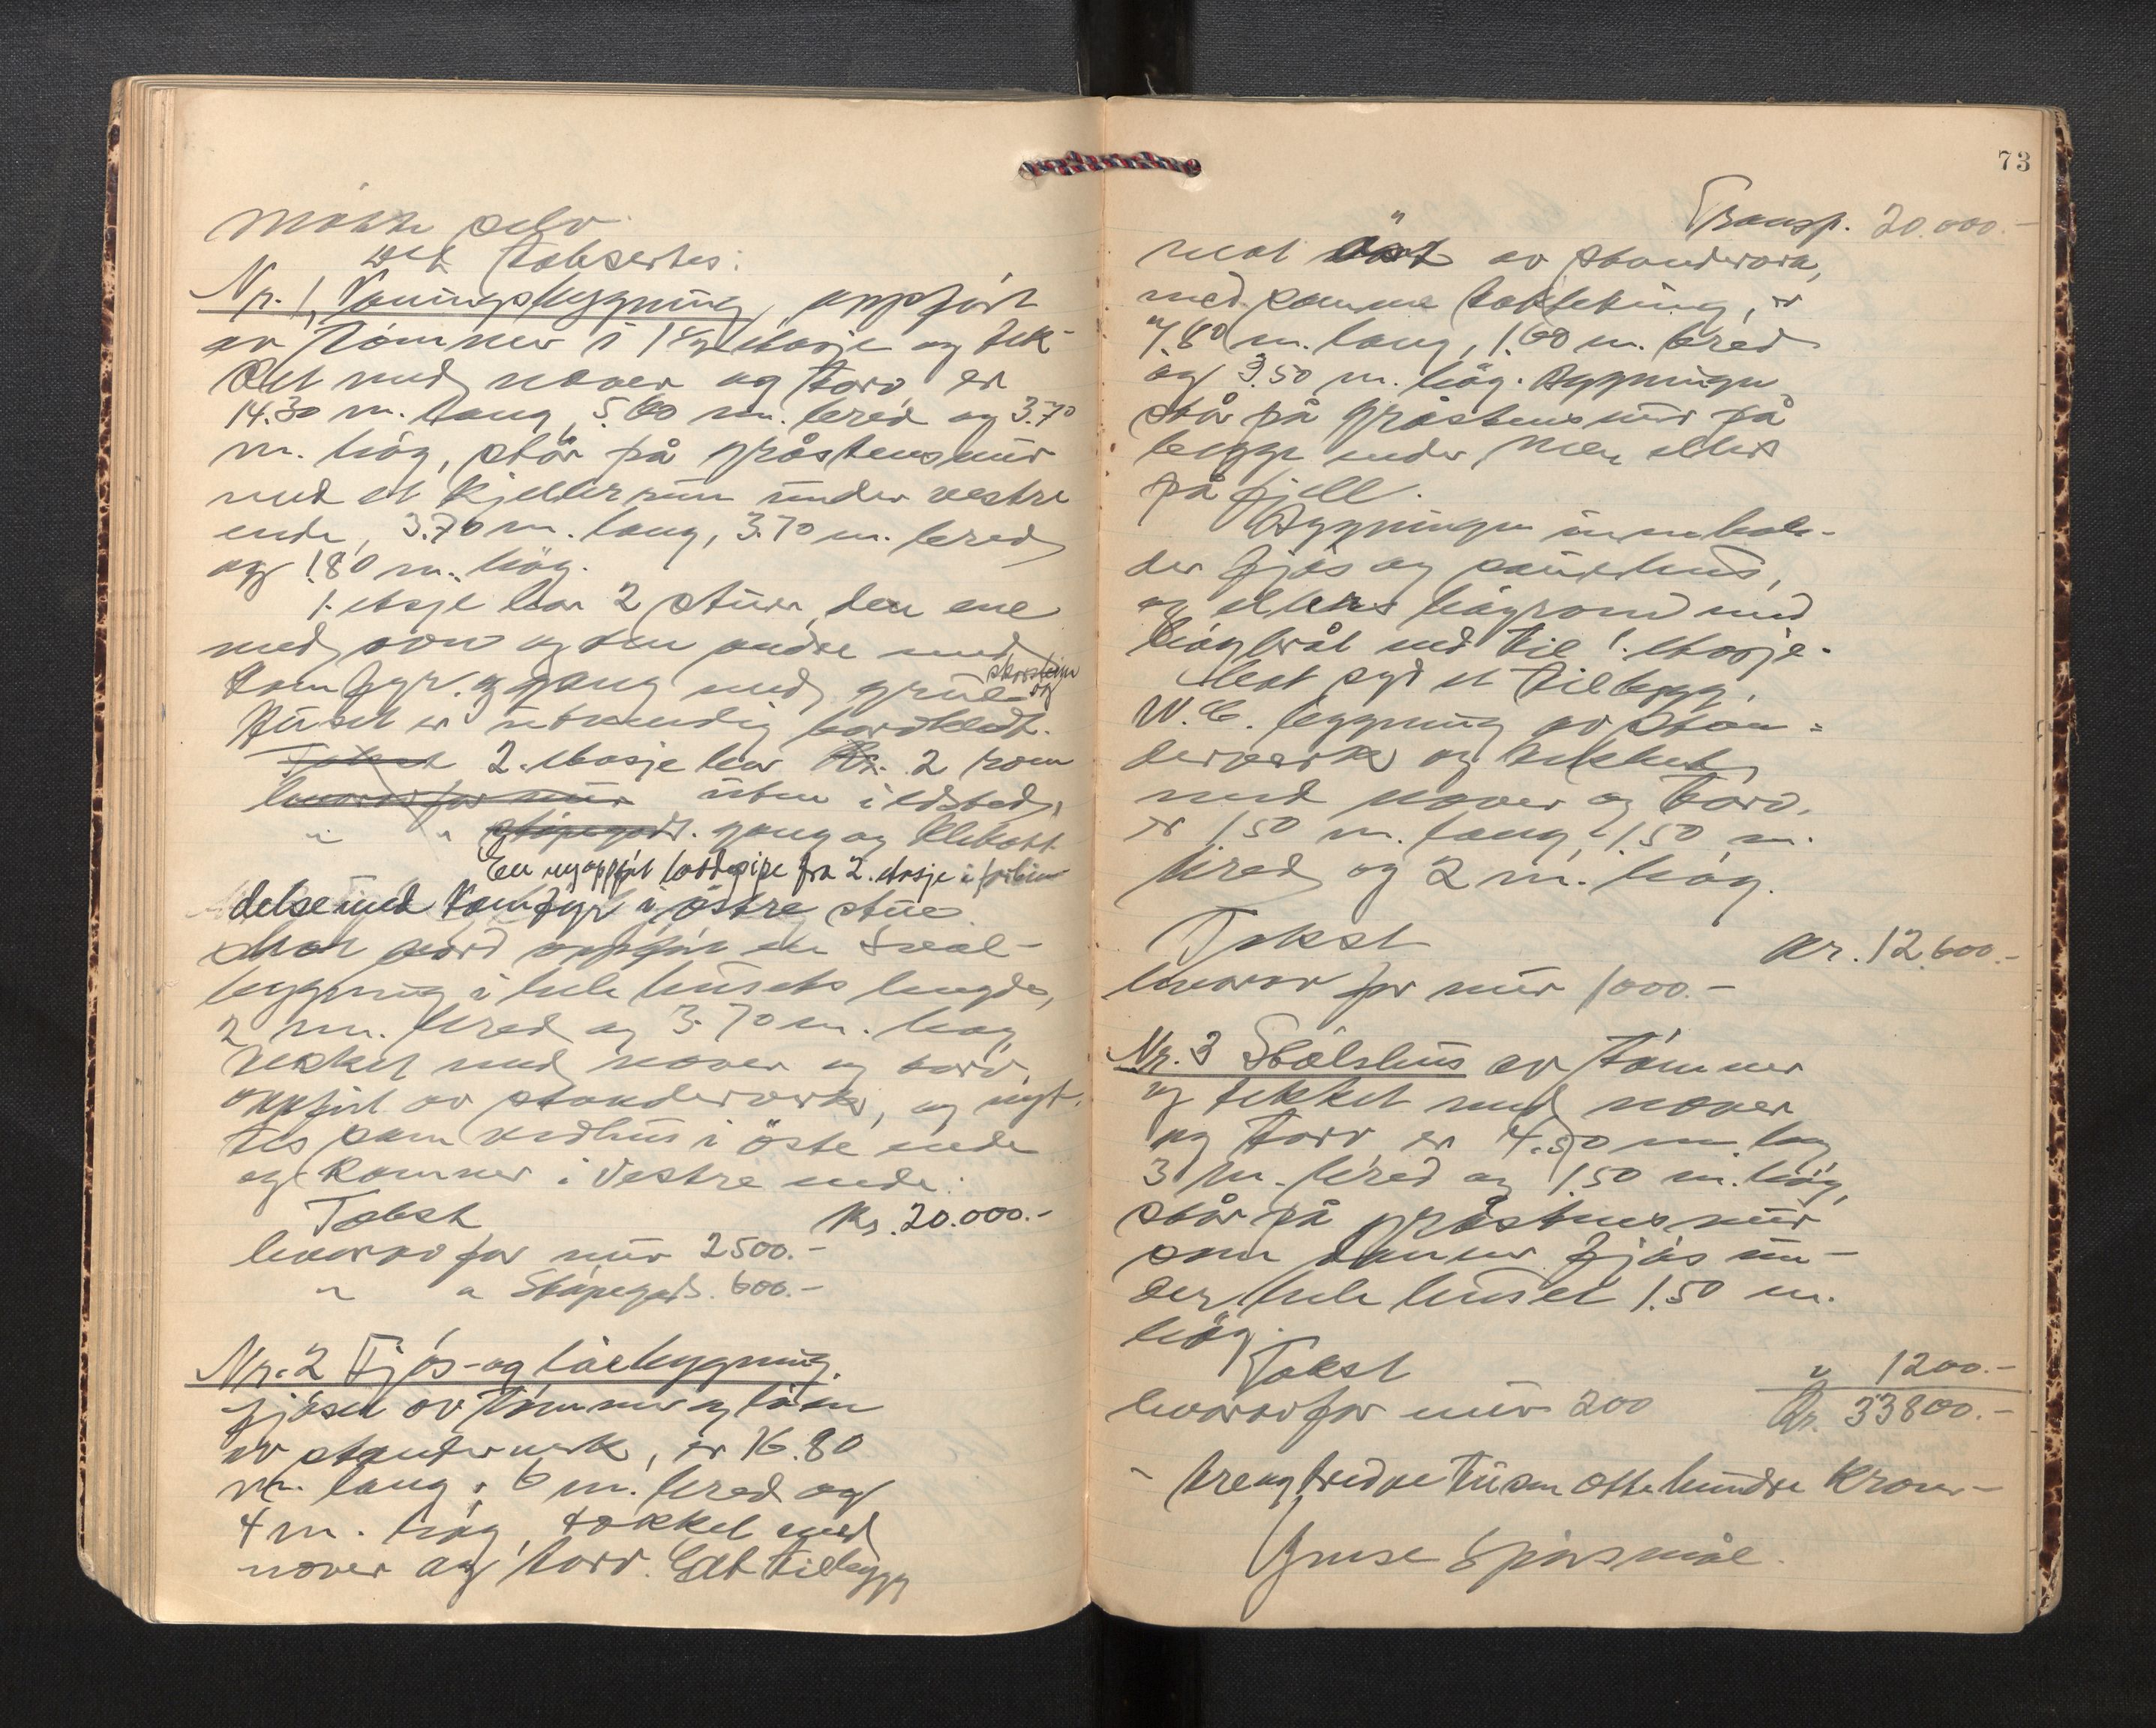 møtte selv.
Det takseres:
Nr. 1, Våningsbygning, oppført
av tømmer i 1 1/2 etasje og tek-
ket med never og torv er
14.30 m. lang, 5.60 m. bred og 3.70
m. høg, står på gråstensmur
med et kjellerrum under vestre
ende, 3.70 m. lang, 3.70 m. bred
og 1.80 m. høg.
1. etasje har 2 stuer, den ene
med ovn og den andre med
komfyr. og gang med grue skorstein og
Huset er utvendig bordkledt.
Takst 2. etasje har Kr. 2 rom
hvorav for mur uten ildsted,
" " støpegods. gang og klebott
En ny oppført loddpipe fra 2. etasje i forbin-
delse med komfyr i østre stue.
Mot nord oppført en sval-
bygning i hele husets lengde,
2 m. bred og 3.70 m. høg
tekket med never og torv,
oppført av standerverk, og nyt-
tes som vedhus i østre ende
og kammer i vestre ende.
Takst Kr. 20.000.-
hvorav for mur 2500.-
" " Støpegods. 600.-
Nr. 2 Fjøs- og låebygning.
fjøset av tømmer og låen
av standerverk, er 16.80
m. lang, 6 m. bred og
4 m. høg, tekket med
never og torv. Et tilbygg
73
Transp. 20.000.-
mot øst av standerverk,
med samme taktekking, er
7.80 m. lang, 1.60 m. bred
og 3.50 m. høg. Bygningen
står på gråstensmur på
begge ender men ellers
på fjell.
Bygningen innehol-
der fjøs og sauehus,
og ellers høyrom med
høybråt ned til 1. etasje.
Mot syd et tilbygg,
W.C. bygning av stan-
derverk og tekket
med never og torv,
er 1.50 m. lang, 1.50 m.
bred og 2 m. høg.
Takst Kr. 12.600.-
hvorav for mur 1000.-
Nr. 3 Stølshus av tømmer
og tekket med never
og torv er 4.50 m. lag
3 m. bred og 1.50 m. høg,
står på gråstensmur
som danner fjøs un-
der hele huset 1.50 m.
høg.
Takst " 1200.-
hvorav for mur 200 Kr. 33800.-
- treogtredve tusen åttehundre kroner -
Gruse Spørsmål.